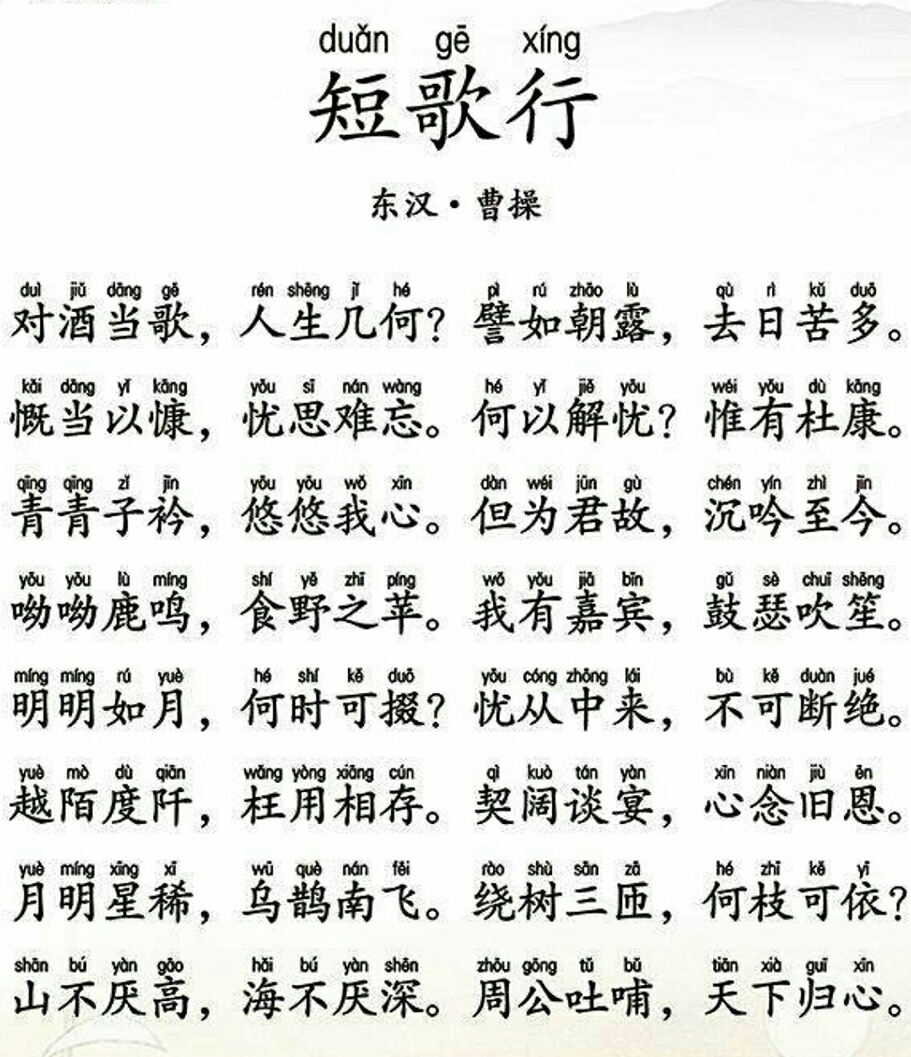 duǎn gē xíng
短歌行
东汉·曹操
duì jiǔ dāng gē rén shēng jǐ hé pì rú zhāo lù qù rì kǔ duō
对酒当歌，人生几何？譬如朝露，去日苦多。
kǎi dāng yǐ kāng yōu sī nán wàng hé yǐ jiě yōu wéi yǒu dù kāng
慨当以慷，忧思难忘。何以解忧？惟有杜康。
qīng qīng zǐ jīn yōu yōu wǒ xīn dàn wéi jūn gù chén yín zhì jīn
青青子衿，悠悠我心。但为君故，沉吟至今。
yōu yōu lù míng shí yě zhī píng wǒ yǒu jiā bīn gǔ sè chuī shēng
呦呦鹿鸣，食野之苹。我有嘉宾，鼓瑟吹笙。
míng míng rú yuè hé shí kě duō yōu cóng zhōng lái bù kě duàn jué
明明如月，何时可掇？忧从中来，不可断绝。
yuè mò dù qiān wǎng yòng xiāng cún qì kuò tán yàn xīn niàn jiù ēn
越陌度阡，枉用相存。契阔谈宴，心念旧恩。
yuè míng xīng xī wū què nán fēi rào shù sān zā hé zhī kě yī
月明星稀，乌鹊南飞。绕树三匝，何枝可依？
shān bú yàn gāo hǎi bú yàn shēn zhōu gōng tǔ bǔ tiān xià guī xīn
山不厌高，海不厌深。周公吐哺，天下归心。